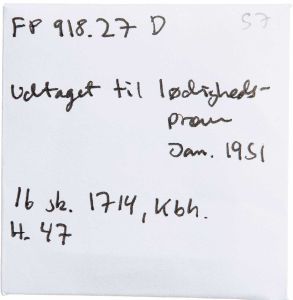 FP 918.27 D
57
Udtaget til lødigheds-
prøve
Jan. 1951
16 sk. 1714, Kbh.
H. 47